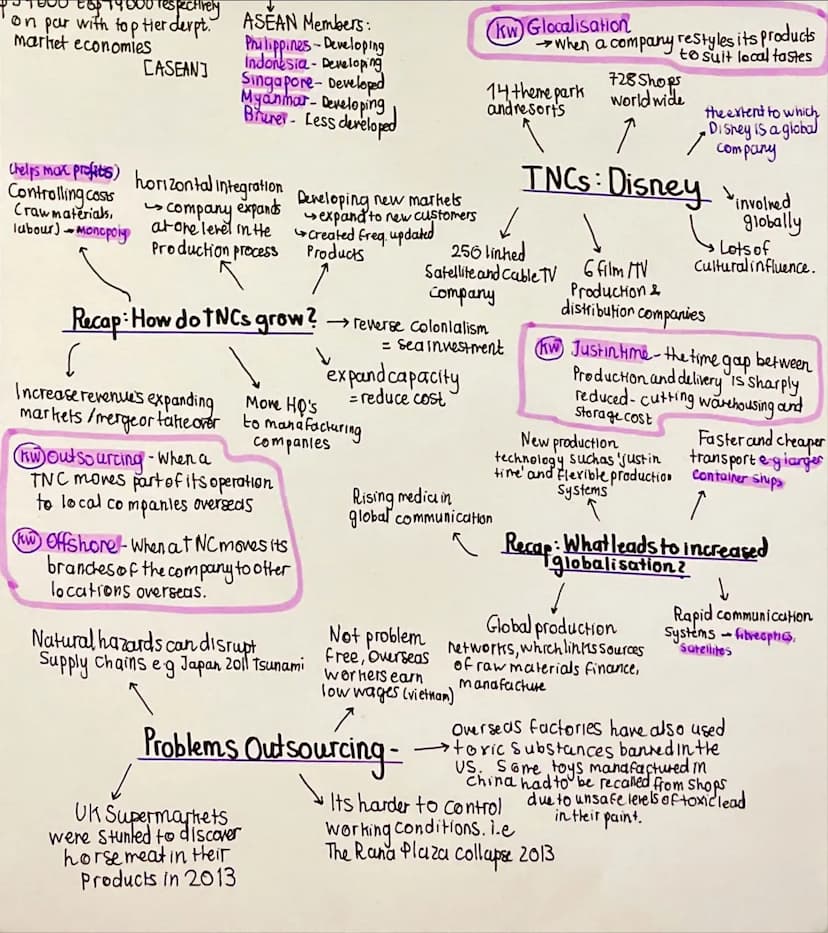 on par with top tier
market economies
[ASEAN]
ASEAN Members:
Philippines - Developing
Indonesia - Developing
Singapore - Developed
Myanmar - Developing
Brunei - Less developed
KW Glocalisation
→ when a company restyles its products
to suit local tastes
14 theme park
and resorts
728 Shops
worldwide
the extent to which
Disney is a global
company
TNCs: Disney
involved
globally
Lots of
Cultural influence.
256 linked
Satellite and Cable TV
Company
6 film/TV
Production &
distribution companies
(helps max profits)
Controlling costs
(raw materials,
labour) → Monopoly
horizontal integration
↳ company expands
at one level in the
Production process
Developing new markets
↳ expand to new customers
↳ created freq. updated
Products
Recap: How do TNCs grow?
→ reverse colonialism
= sea investment
expand capacity
= reduce cost
More HQ's
to manafacturing
companies
Increase revenue's expanding
markets/merge or takeover
KW Just in time - the time gap between
Production and delivery is sharply
reduced - cutting warehousing and
storage cost
KW Outsourcing - When a
TNC moves part of its operation
to local companies overseas
KW Offshore - When a TNC moves its
branches of the company to other
locations overseas.
New production
technology such as 'just in
time' and flexible production
Systems
Faster and cheaper
transport e.g larger
Container ships
Rising media in
global communication
Recap: What leads to increased
globalisation?
Global production
networks, which links sources
of raw materials finance,
manafacture
Rapid communication
Systems - fibreoptics,
satellites
Natural hazards can disrupt
Supply chains e.g Japan 2011 Tsunami
Not problem
free, Overseas
workers earn
low wages (vietnam)
Problems Outsourcing -
→ Overseas factories have also used
toxic substances banned in the
US. Some toys manufactured in
China had to be recalled from shops
due to unsafe levels of toxic lead
in their paint.
UK Supermarkets
were stunted to discover
horsemeat in their
Products in 2013
Its harder to control
working conditions. i.e
The Rana Plaza collapse 2013